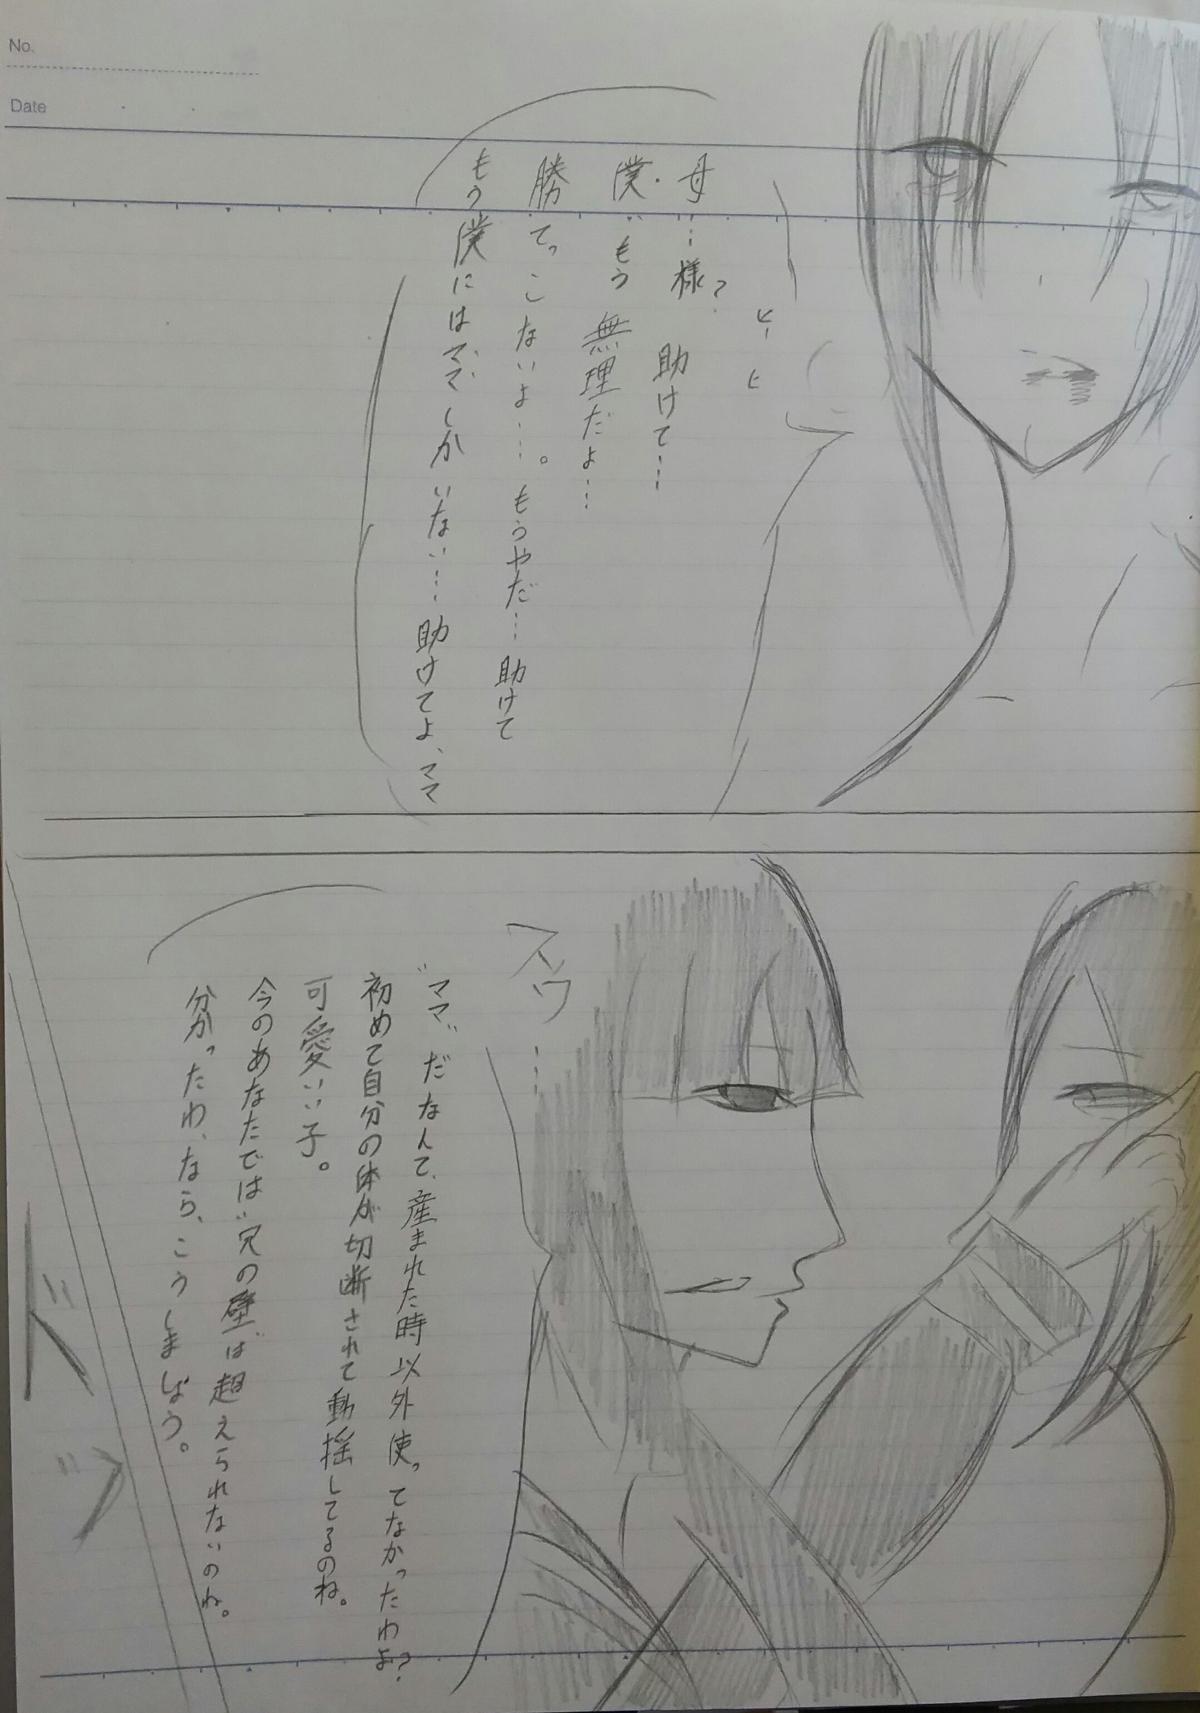 No.
Date
ヒーヒ
母…様? 助けて…
僕…もう 無理だよ…
勝てっこないよ…。もうやだ…助けて
もう僕にはママしかいない…助けてよ、ママ
スッ……
"ママ"だなんて、産まれた時以外使ってなかったわよ?
初めて自分の体が切断されて動揺してるのね。
可愛いい子。
今のあなたでは"穴の壁"は超えられないのね。
分かったわ、なら、こうしましょう。
ドッ